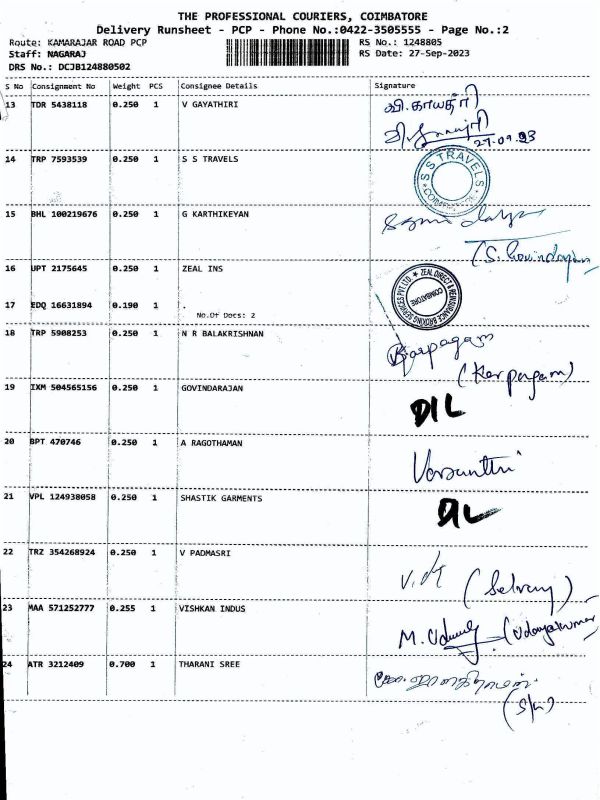 THE PROFESSIONAL COURIERS, COIMBATORE
Delivery Runsheet - PCP - Phone No.:0422-3505555 - Page No.:2
Route: KAMARAJAR ROAD PCP RS No.: 1248805
Staff: NAGARAJ RS Date: 27-Sep-2023
DRS No.: DCJB124880502
S No Consignment No Weight PCS Consignee Details Signature
13 TDR 5438118 0.250 1 V GAYATHIRI வி.காயத்ரி
27.09.23
14 TRP 7593539 0.250 1 S S TRAVELS S S TRAVELS COIMBATORE
15 BHL 100219676 0.250 1 G KARTHIKEYAN
T.S. Govindarajan
16 UPT 2175645 0.250 1 ZEAL INS ZEAL DIRECT & REINSURANCE BROKING SERVICES PVT. LTD. COIMBATORE
17 EDQ 16631894 0.190 1 .
No.Of Docs: 2
18 TRP 5908253 0.250 1 N R BALAKRISHNAN Karpagam
(Karpagam)
19 IXM 504565156 0.250 1 GOVINDARAJAN DIL
20 BPT 470746 0.250 1 A RAGOTHAMAN Vasanthi
21 VPL 124938058 0.250 1 SHASTIK GARMENTS DL
22 TRZ 354268924 0.250 1 V PADMASRI
(Selvaraj)
23 MAA 571252777 0.255 1 VISHKAN INDUS M. (Udayakumar
24 ATR 3212409 0.700 1 THARANI SREE